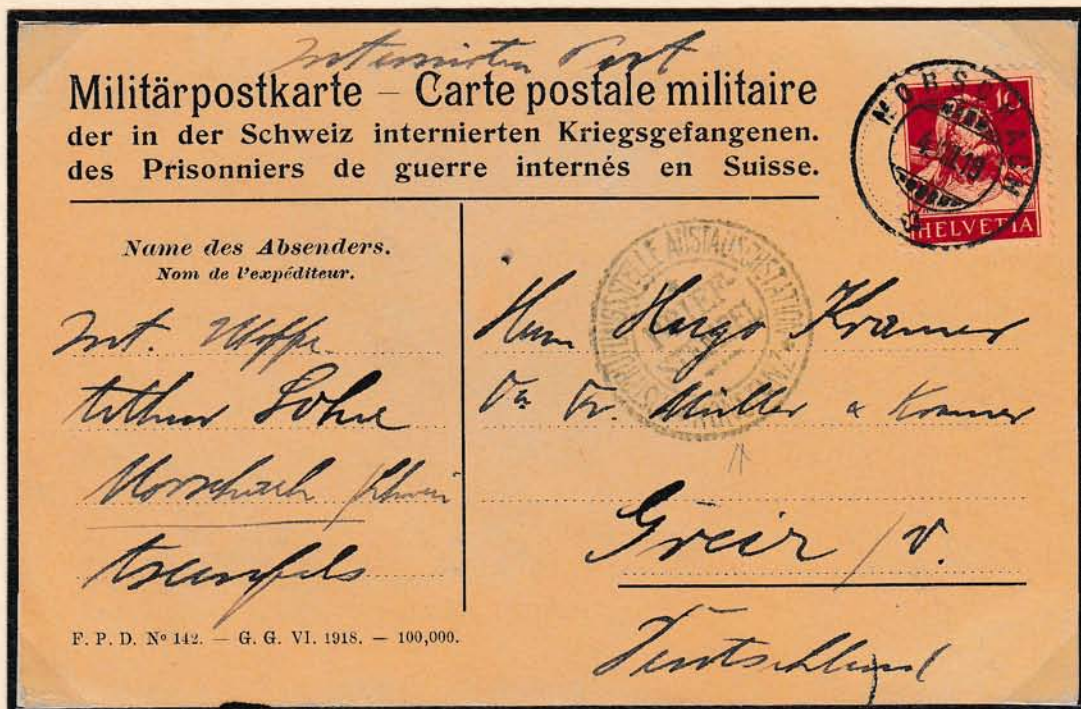 Internierten Post
Militärpostkarte – Carte postale militaire
der in der Schweiz internierten Kriegsgefangenen.
des Prisonniers de guerre internés en Suisse.
MORSCHACH
10
HELVETIA
Name des Absenders.
Nom de l'expéditeur.
Int.
Arthur
Morschach / Schweiz
Axenfels
AUSTAUSCHSTATION
Herrn Hugo Kramer
Fr. Müller & Kramer
Greiz / V.
Deutschland
F. P. D. Nº 142. — G. G. VI. 1918. — 100,000.